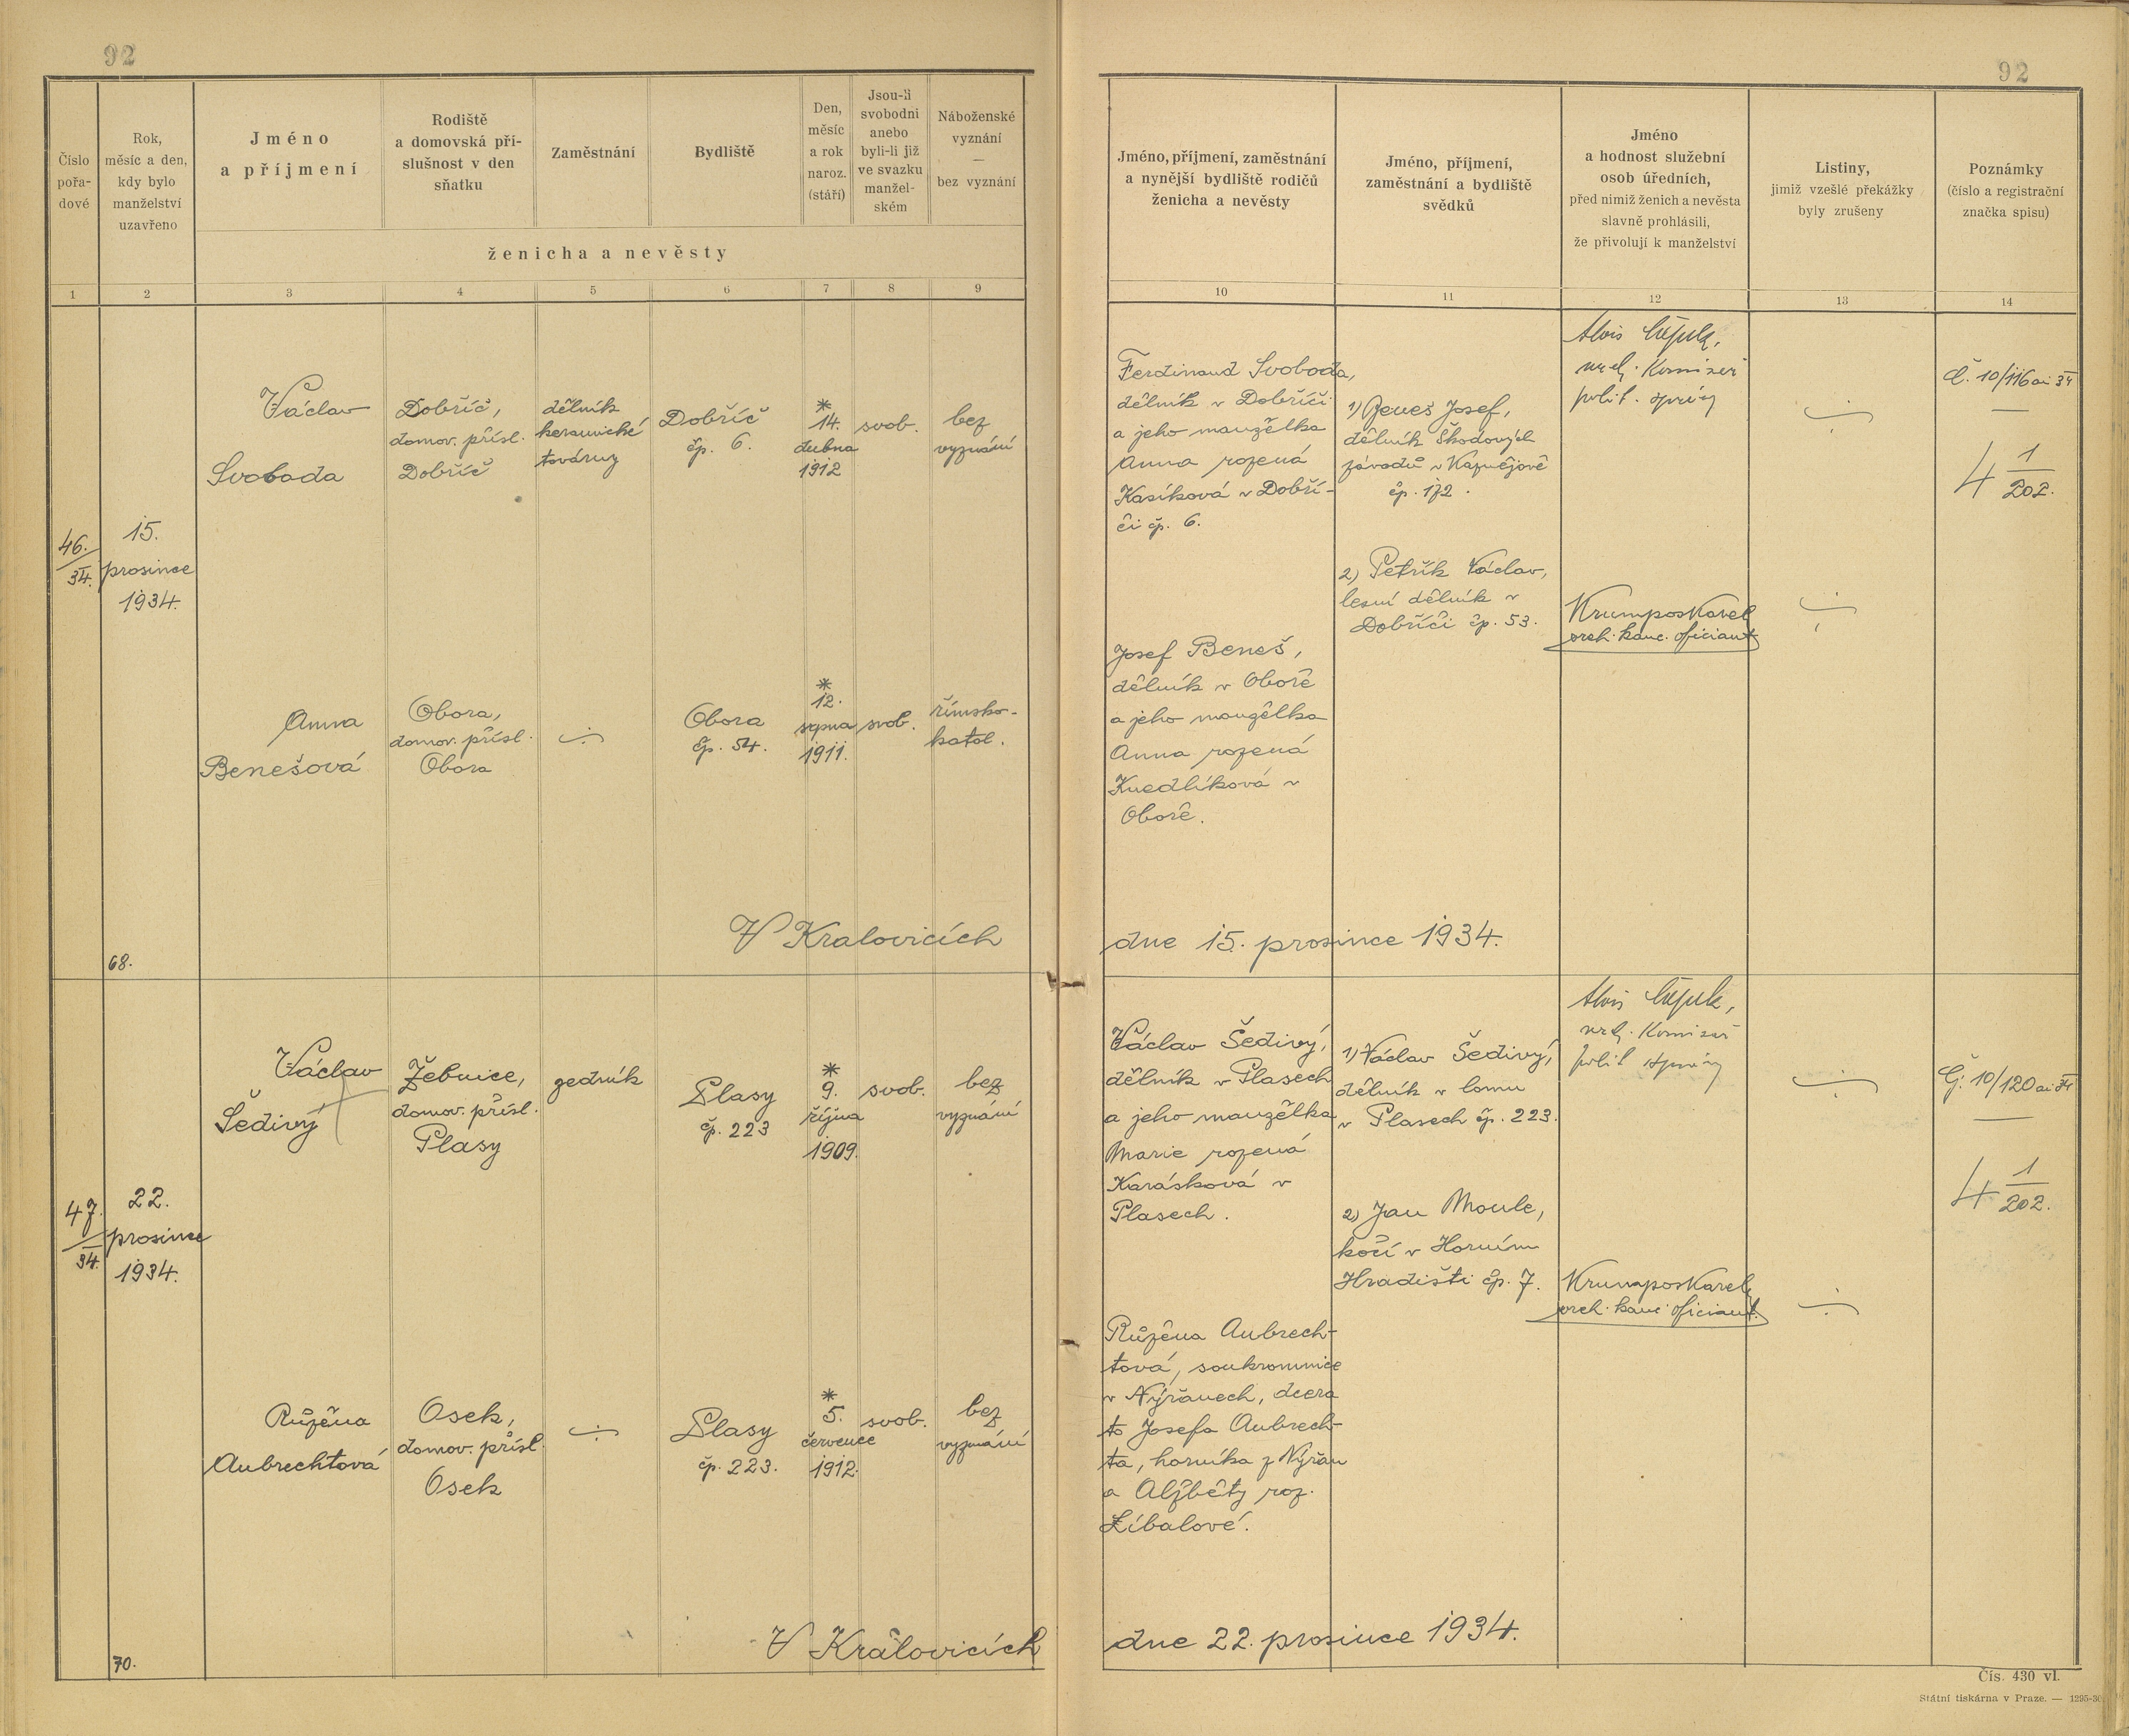 92
92
Číslo
pořa-
dové
Rok,
měsíc a den,
kdy bylo
manželství
uzavřeno
Jméno
a příjmení
Rodiště
a domovská pří-
slušnost v den
sňatku
Zaměstnání
Bydliště
Den,
měsíc
a rok
naroz.
(stáří)
Jsou-li
svobodni
anebo
byli-li již
ve svazku
manžel-
ském
Náboženské
vyznání
—
bez vyznání
ženicha a nevěsty
Jméno, příjmení, zaměstnání
a nynější bydliště rodičů
ženicha a nevěsty
Jméno, příjmení,
zaměstnání a bydliště
svědků
Jméno
a hodnost služební
osob úředních,
před nimiž ženich a nevěsta
slavně prohlásili,
že přivolují k manželství
Listiny,
jimiž vzešlé překážky
byly zrušeny
Poznámky
(číslo a registrační
značka spisu)
1 2 3 4 5 6 7 8 9 10 11 12 13 14
46.
34.
15.
prosince
1934.
68.
Václav
Svoboda
Dobříč,
domov. přísl.
Dobříč
dělník
keramické
továrny
Dobříč
čp. 6.
*
14.
dubna
1912
svob.
bez
vyznání
Ferdinand Svoboda,
dělník v Dobříči
a jeho manželka
Anna rozená
Kasíková v Dobří-
či čp. 6.
1) Beneš Josef,
dělník Škodových
závodů v Kaznějově
čp. 172.
2) Petřík Václav,
lesní dělník v
Dobříči čp. 53.
Alois
polit. správy
Krumpos Karel
kanc. oficiant
Č. 10/116 ai 34
4 1
202.
Anna
Benešová
Obora,
domov. přísl.
Obora
Obora
čp. 54.
*
12.
srpna
1911.
svob.
římsko-
katol.
Josef Beneš,
dělník v Oboře
a jeho manželka
Anna rozená
Knedlíková v
Oboře.
V Kralovicích
dne 15. prosince 1934.
47.
34.
22.
prosince
1934.
70.
Václav
Šedivý
Žebnice,
domov. přísl.
Plasy
zedník
Plasy
čp. 223
*
9.
října
1909.
svob.
bez
vyznání
Václav Šedivý,
dělník v Plasech
a jeho manželka
Marie rozená
Karásková v
Plasech.
1) Václav Šedivý,
dělník v lomu
v Plasech čp. 223.
2) Jan Moule,
kočí v Horním
Hradišti čp. 7.
Alois
polit správy
Krumpos Karel
kanc. oficiant.
Č. 10/120 ai 34
4 1
202.
Růžena
Aubrechtová
Osek,
domov. přísl.
Osek
Plasy
čp. 223.
*
5.
července
1912.
svob.
bez
vyznání
Růžena Aubrech-
tová, soukromnice
v Nýřanech, dcera
to Josefa Aubrech-
ta, horníka z Nýřan
a Alžběty roz.
Líbalové.
V Kralovicích
dne 22. prosince 1934.
Čís. 430 vl.
Státní tiskárna v Praze. — 1295-30